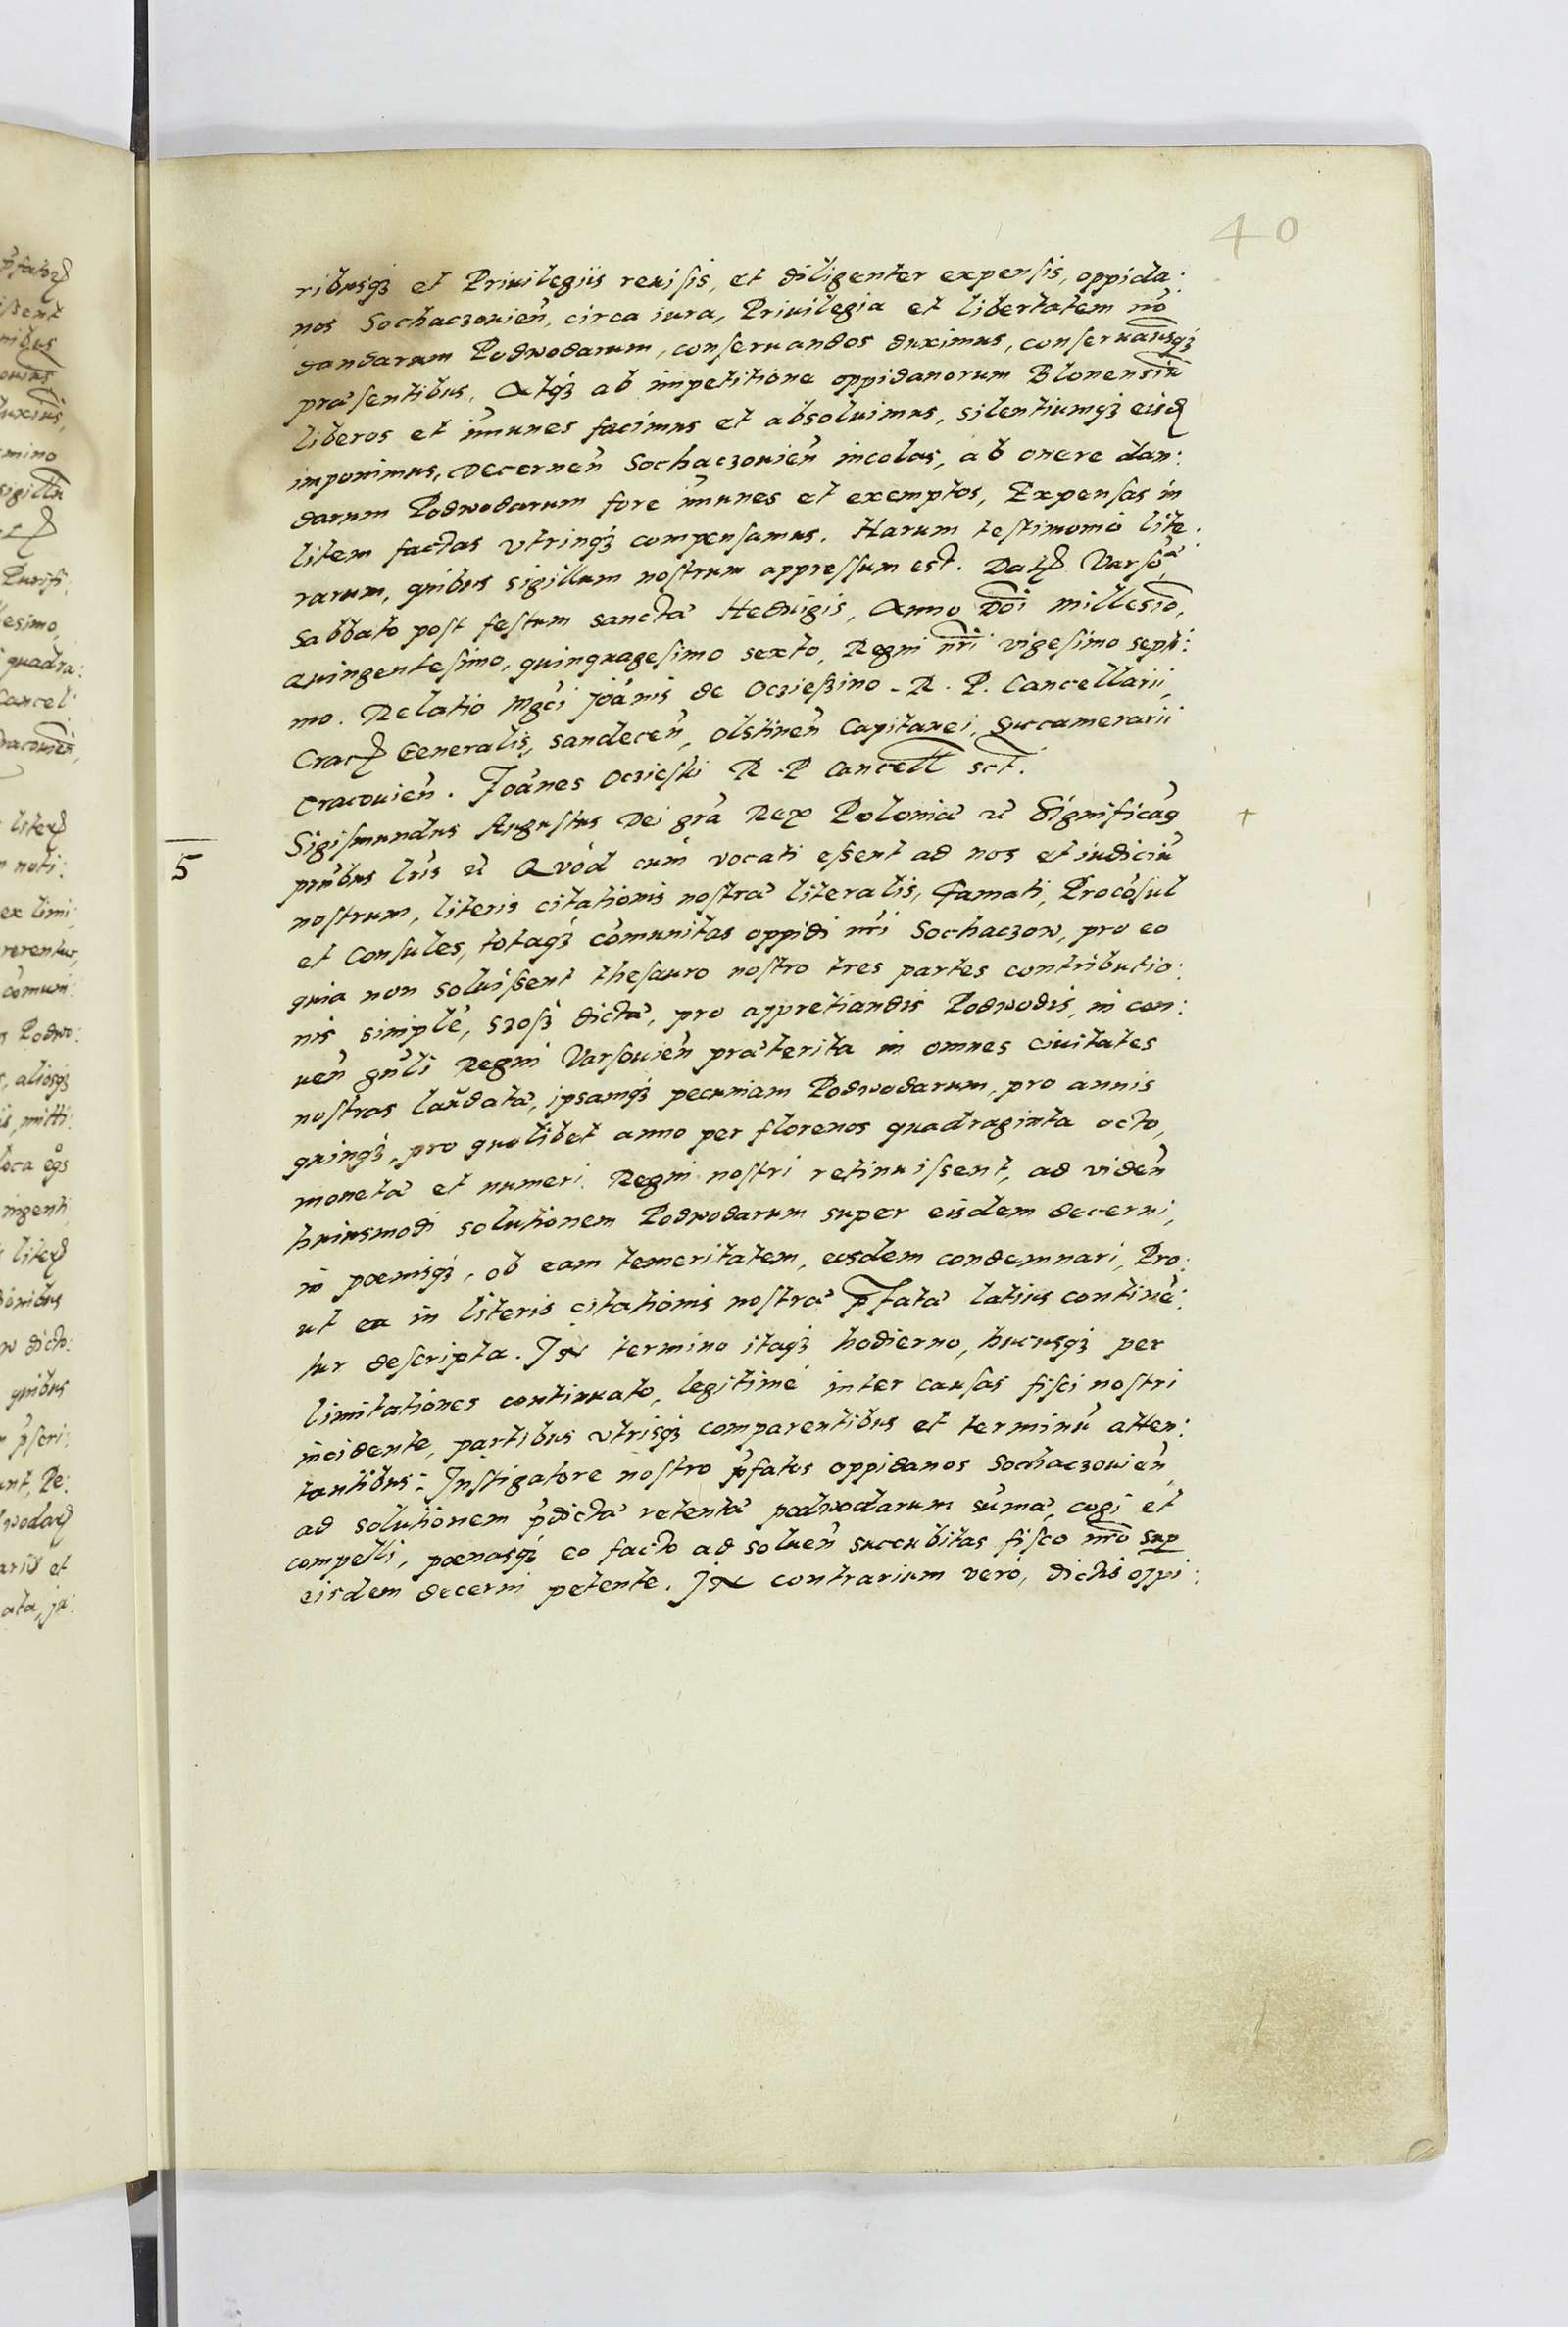 40
ribusq3 et Priuilegiis reuisis, et diligenter expensis, oppida:
nos Sochaczouień, circa iura, Priuilegia et libertatem nō
dandarum Podwodarum, conseruandos duximus, conseruamusq3
præsentibus. Atq3 ab impetitione oppidanorum Blonensiū
liberos et im̄unes facimus et absoluimus, silentiumq3 eisd
imponimus, decerneñ Sochaczouień incolas, ab onere dan:
darum Podwodarum fore im̄unes et exemptos, Expensas in
litem factas vtrinq3 compensamus. Harum testimonio lite:
rarum, quibus sigillum nostrum appressum est. Dat Varso
Sabbato post festum sanctæ Heduigis, Anno Dni millesio,
quingentesimo, quinquagesimo sexto, Regni nri vigesimo septi:
mo. Relatio Mgci Joānis de Oczieszino - R. P. Cancellarii,
Crac Generalis, sandeceñ, olstineñ Capitanei, Succamerarii
Cracouień. Joānes Oczieski R. P. Cancell sct.
5
Sigismundus Augustus Dei grā Rex Poloniæ &c Significa +
pntibus lris &c Quòd cum vocati essent ad nos et iudiciū
nostrum, literis citationis nostræ literalis, Famati, Procōsul
et Consules, totaq3 com̄unitas oppidi nri Sochaczow, pro eo
quia non soluissent thesauro nostro tres partes contributio:
nis simple, szosz dictæ, pro appretiandis Podwodis, in con:
ueñ gnli Regni Varsouień præterita in omnes ciuitates
nostras laudatæ, ipsamq3 pecuniam Podwodarum, pro annis
quinq3, pro quolibet anno per florenos quadraginta octo,
monetæ et numeri Regni nostri retinuissent, ad videñ
huiusmodi solutionem Podwodarum super eisdem decerni,
in poenisq3, ob eam temeritatem, eosdem condemnari, Pro:
ut ea in literis citationis nostræ pfatæ latius continē:
tur descripta. In termino itaq3 hodierno, hucusq3 per
limitationes continuato, legitimè inter causas fisci nostri
incidente, partibus vtrisq3 comparentibus et terminū atten:
tantibus: Instigatore nostro pfatos oppidanos Sochaczouień,
ad solutionem pdictæ retentæ podwodarum sum̄æ, cogi et
compelli, poenasq3 eo facto ad solueñ succubitas fisco nro sup
eisdem decerni petente. In contrarium verò, dictis oppi: